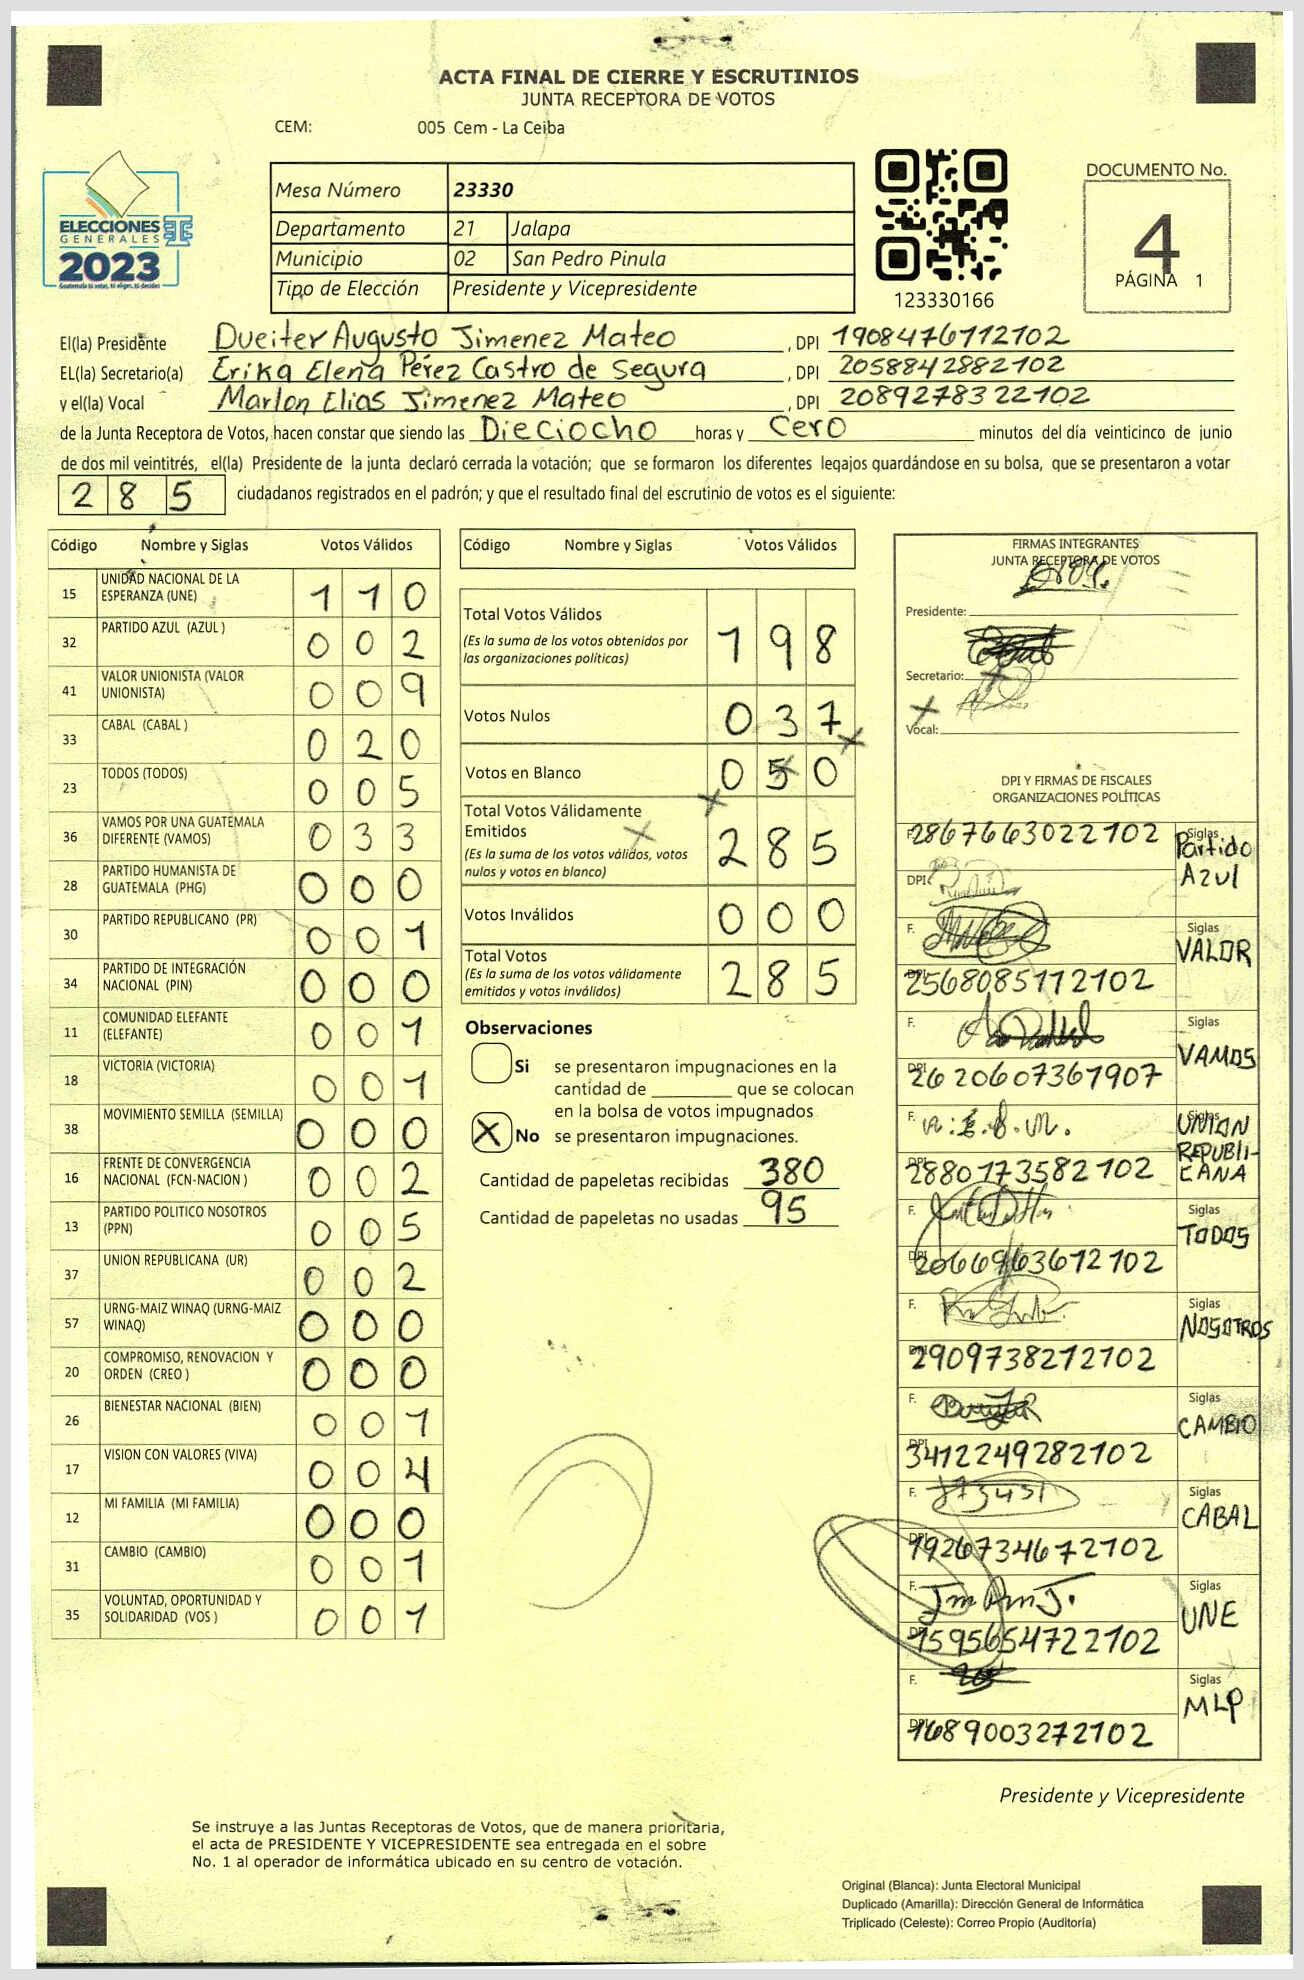 ACTA FINAL DE CIERRE Y ESCRUTINIOS
JUNTA RECEPTORA DE VOTOS
CEM: 005 Cem - La Ceiba
ELECCIONES
GENERALES
2023
Guatemala tú votas, tú eliges, tú decides
Mesa Número 23330
Departamento 21 Jalapa
Municipio 02 San Pedro Pinula
Tipo de Elección Presidente y Vicepresidente
123330166
DOCUMENTO No.
4
PÁGINA 1
El(la) Presidente Dueiter Augusto Jimenez Mateo , DPI 1908476112102
EL(la) Secretario(a) Erika Elena Pérez Castro de Segura , DPI 2058842882102
y el(la) Vocal Marlon Elias Jimenez Mateo , DPI 2089278322102
de la Junta Receptora de Votos, hacen constar que siendo las Dieciocho horas y Cero minutos del día veinticinco de junio
de dos mil veintitrés, el(la) Presidente de la junta declaró cerrada la votación; que se formaron los diferentes legajos quardándose en su bolsa, que se presentaron a votar
285 ciudadanos registrados en el padrón; y que el resultado final del escrutinio de votos es el siguiente:
Código Nombre y Siglas Votos Válidos
15 UNIDAD NACIONAL DE LA ESPERANZA (UNE) 110
32 PARTIDO AZUL (AZUL ) 002
41 VALOR UNIONISTA (VALOR UNIONISTA) 009
33 CABAL (CABAL ) 020
23 TODOS (TODOS) 005
36 VAMOS POR UNA GUATEMALA DIFERENTE (VAMOS) 033
28 PARTIDO HUMANISTA DE GUATEMALA (PHG) 000
30 PARTIDO REPUBLICANO (PR) 001
34 PARTIDO DE INTEGRACIÓN NACIONAL (PIN) 000
11 COMUNIDAD ELEFANTE (ELEFANTE) 001
18 VICTORIA (VICTORIA) 001
38 MOVIMIENTO SEMILLA (SEMILLA) 000
16 FRENTE DE CONVERGENCIA NACIONAL (FCN-NACION ) 002
13 PARTIDO POLITICO NOSOTROS (PPN) 005
37 UNION REPUBLICANA (UR) 002
57 URNG-MAIZ WINAQ (URNG-MAIZ WINAQ) 000
20 COMPROMISO, RENOVACION Y ORDEN (CREO ) 000
26 BIENESTAR NACIONAL (BIEN) 001
17 VISION CON VALORES (VIVA) 004
12 MI FAMILIA (MI FAMILIA) 000
31 CAMBIO (CAMBIO) 001
35 VOLUNTAD, OPORTUNIDAD Y SOLIDARIDAD (VOS ) 001
Código Nombre y Siglas Votos Válidos
Total Votos Válidos 198
(Es la suma de los votos obtenidos por
las organizaciones políticas)
Votos Nulos 037
Votos en Blanco 050
Total Votos Válidamente
Emitidos 285
(Es la suma de los votos válidos, votos
nulos y votos en blanco)
Votos Inválidos 000
Total Votos 285
(Es la suma de los votos válidamente
emitidos y votos inválidos)
Observaciones
Si se presentaron impugnaciones en la
cantidad de ________ que se colocan
en la bolsa de votos impugnados
X No se presentaron impugnaciones.
Cantidad de papeletas recibidas 380
Cantidad de papeletas no usadas 95
FIRMAS INTEGRANTES
JUNTA RECEPTORA DE VOTOS
Presidente:
Secretario:
Vocal:
DPI Y FIRMAS DE FISCALES
ORGANIZACIONES POLÍTICAS
F. 2867663022102 Siglas Partido Azul
DPI
F. Siglas VALOR
DPI 2568085112102
F. Siglas VAMOS
DPI 2620607361907
F. Siglas UNION REPUBLI-CANA
DPI 2880173582102
F. Siglas TODOS
DPI 2066963612102
F. Siglas NOSOTROS
DPI 2909738212102
F. Siglas CAMBIO
DPI 3412249282102
F. Siglas CABAL
DPI 1926734672102
F. Siglas UNE
DPI 1595654722102
F. Siglas MLP
DPI 1689003272102
Presidente y Vicepresidente
Se instruye a las Juntas Receptoras de Votos, que de manera prioritaria,
el acta de PRESIDENTE Y VICEPRESIDENTE sea entregada en el sobre
No. 1 al operador de informática ubicado en su centro de votación.
Original (Blanca): Junta Electoral Municipal
Duplicado (Amarilla): Dirección General de Informática
Triplicado (Celeste): Correo Propio (Auditoría)